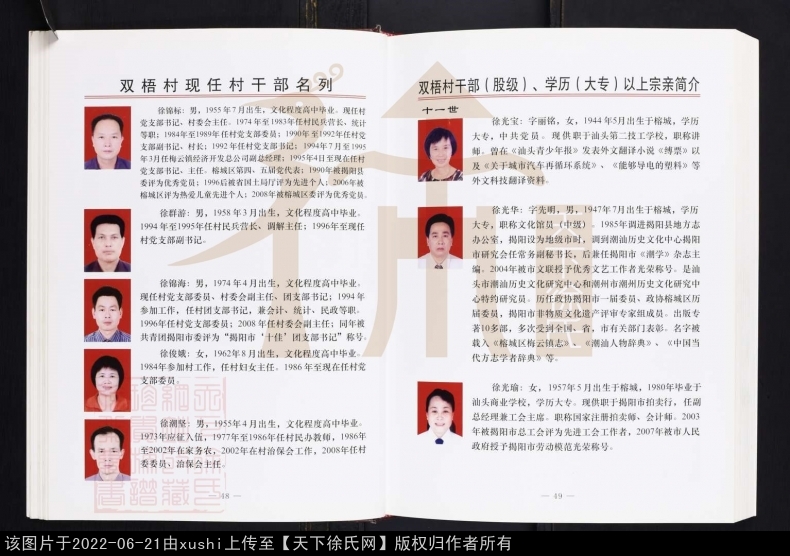 双梧村现任村干部名列
徐锦标：男，1955年7月出生，文化程度高中毕业。现任村
党支部书记，村委会主任。1974年至1983年任村民兵营长、统计
等职；1984年至1989年任村党支部委员；1990年至1992年任村党
支部副书记，村长；1992年任村党支部书记，1994年7月至1995
年3月任梅云镇经济开发总公司副总经理；1995年4日至现在任村
党支部书记、主任。榕城区第四、五届党代表；1990年被揭阳县
委评为优秀党员；1996后被省国土局厅评为先进个人；2006年被
榕城区评为热爱儿童先进个人；2008年被榕城区委评为优秀党员。
徐群游：男，1958年3月出生，文化程度高中毕业。
1994年至1995年任村民兵营长，调解主任；1996年至现任
村党支部副书记。
徐锦海：男，1974年4月出生，文化程度高中毕业。
现任村党支部委员、村委会副主任、团支部书记；1994年
参加工作，任村团支部书记，兼会计、统计、民政等职。
1996年任村党支部委员；2008年任村委会副主任；同年被
共青团揭阳市委评为“揭阳市‘十佳’团支部书记”称号。
徐俊娥：女，1962年8月出生，文化程度高中毕业。
1984年参加村工作，任村妇女主任。1986年至现在任村党
支部委员。
徐潮坚：男，1955年4月出生，文化程度高中毕业。
1973年应征入伍，1977年至1986年任村民办教师，1986年
至2002年在家务农，2002年在村治保会工作，2008年任村
委委员、治保会主任。
— 48 —
双梧村干部（股级）、学历（大专）以上宗亲简介
十一世
徐光宝：字丽铭，女，1944年5月出生于榕城，学历
大专，中共党员。现供职于汕头第二技工学校，职称讲
师。曾在《汕头青少年报》发表外文翻译小说《缚票》以
及《关于城市汽车再循环系统》、《能够导电的塑料》等
外文科技翻译资料。
徐光华：字先明，男，1947年7月出生于榕城，学历
大专，职称文化馆员（中级） 1985年调进揭阳县地方志
办公室，揭阳设为地级市时，调到潮汕历史文化中心揭阳
市研究会任常务副秘书长，后兼任揭阳市《潮学》杂志主
编。2004年被市文联授予优秀文艺工作者光荣称号。是汕
头市潮汕历史文化研究中心和潮州市潮州历史文化研究中
心特约研究员。历任政协揭阳市一届委员、政协榕城区历
届委员，揭阳市非物质文化遗产评审专家组成员。出版专
著10多部，多次受到全国、省，市有关部门表彰。名字被
载入《榕城区梅云镇志》、《潮汕人物辞典》、《中国当
代方志学者辞典》等。
徐光瑜：女，1957年5月出生于榕城，1980年毕业于
汕头商业学校，学历大专。现供职于揭阳市拍卖行，任副
总经理兼工会主席。职称国家注册拍卖师、会计师。2003
年被揭阳市总工会评为先进工会工作者，2007年被市人民
政府授予揭阳市劳动模范光荣称号。
— 49 —
该图片于2022-06-21由xushi上传至【天下徐氏网】版权归作者所有